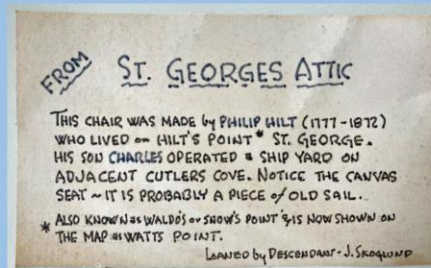 FROM ST. GEORGES ATTIC
THIS CHAIR WAS MADE by PHILIP HILT (1777-1872)
WHO LIVED on HILT'S POINT* ST. GEORGE.
HIS SON CHARLES OPERATED a SHIP YARD ON
ADJACENT CUTLERS COVE. NOTICE THE CANVAS
SEAT ~ IT IS PROBABLY A PIECE of OLD SAIL.
* ALSO KNOWN as WALDO'S or SNOW'S POINT & IS NOW SHOWN ON
THE MAP as WATTS POINT.
LOANED by DESCENDANT - J. SKOGLUND